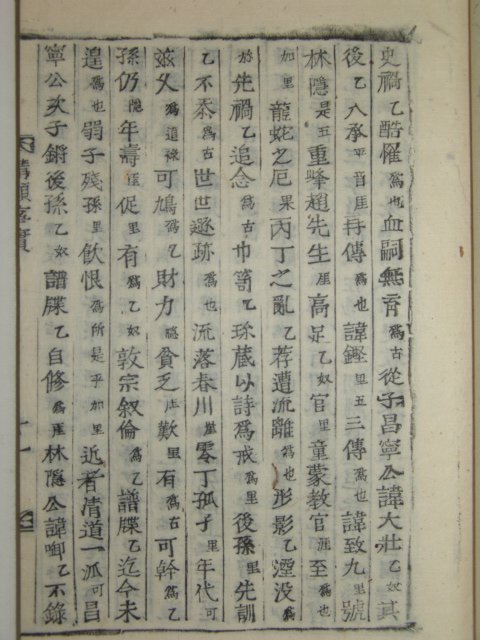 史禍乙酷罹爲也血嗣無育爲古從子昌寧公諱大壯乙奴其
後乙入承乎音厓再傳爲也諱鏗里五三傳爲也諱致九里號
林隱是五重峰趙先生厓高足乙奴官里童蒙教官涯至爲也
如里龍蛇之厄果丙丁之亂乙荐遭流離爲也形影乙湮没爲
於先禍乙追念爲古巾笥乙珎蔵以詩爲戒爲里後孫里先訓
乙不忝爲古世世遯跡爲也流落春川零丁孤子里年代可
玆久爲道祿可鳩爲乙財力隱貧乏歎里有爲古可幹爲乙
孫仍隱年壽厓促里有爲乙奴敦宗叙倫爲乙譜牒乙迄今未
遑爲也弱子殘孫里飮恨爲所是乎如里近者清道一派可昌
寧公次子鏘後孫乙奴譜牒乙自修爲厓林隱公諱啣乙不錄